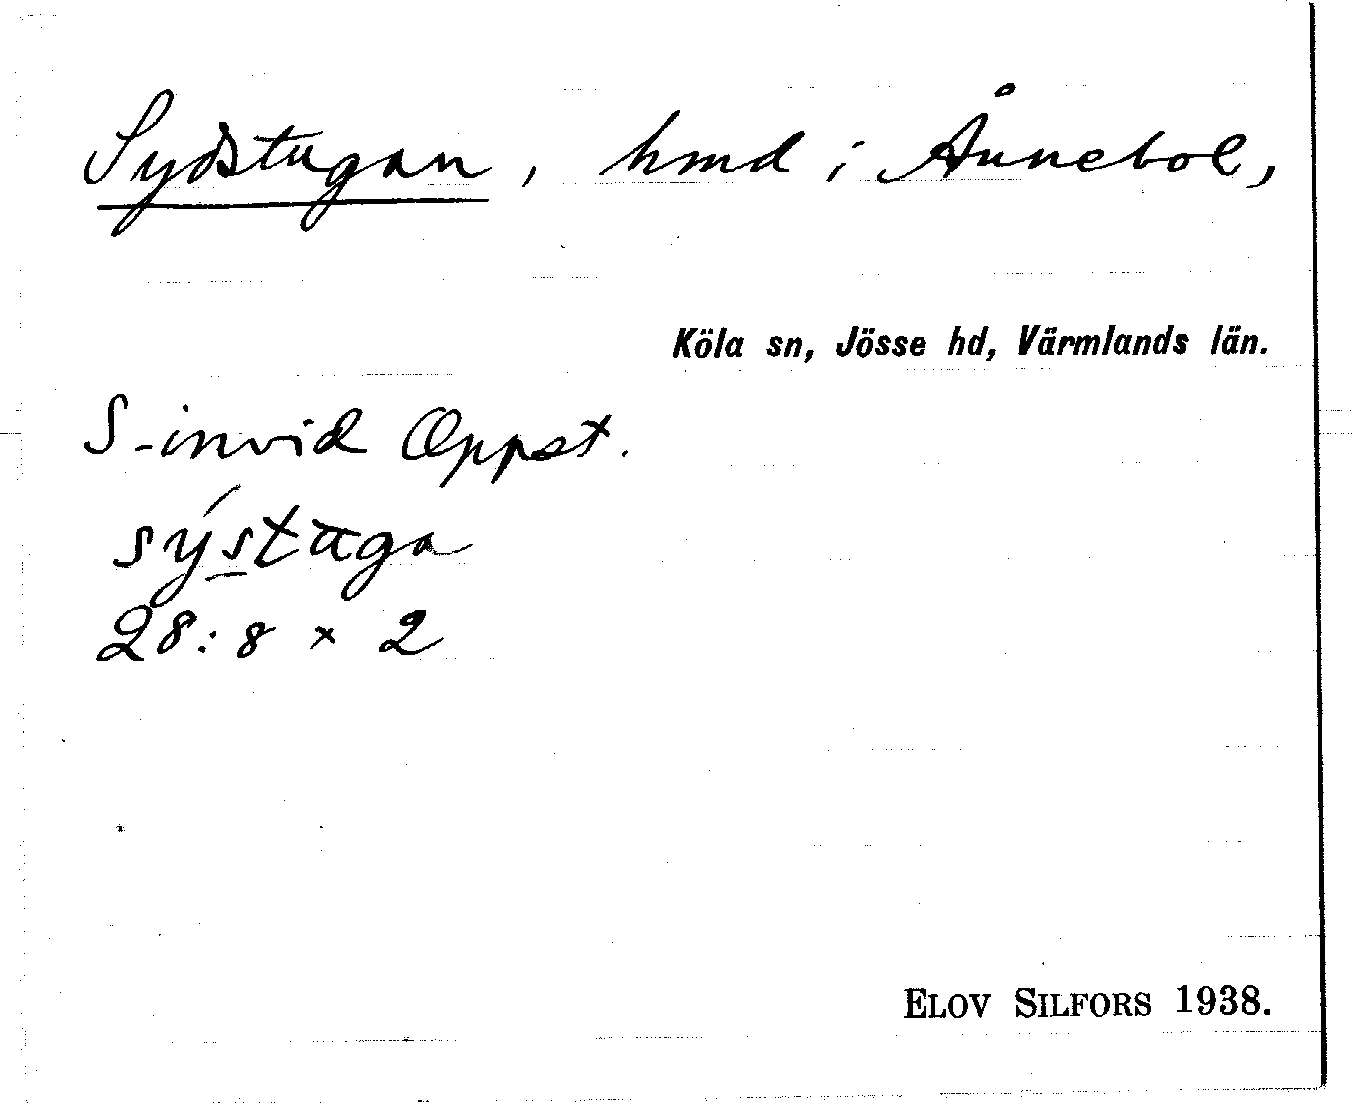 Sydstugan, hmd i Ånnebol,
Köla sn, Jösse hd, Värmlands län.
S-invid Oppst.
sýstūga
28:8 × 2
ELOV SILFORS 1938.